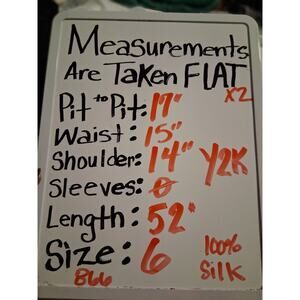 Measurements
Are Taken FLAT
X2
Pit to Pit: 17"
Waist: 15"
Shoulder: 14"
Y2K
Sleeves: 0
Length: 52"
Size: 6
100%
Silk
866